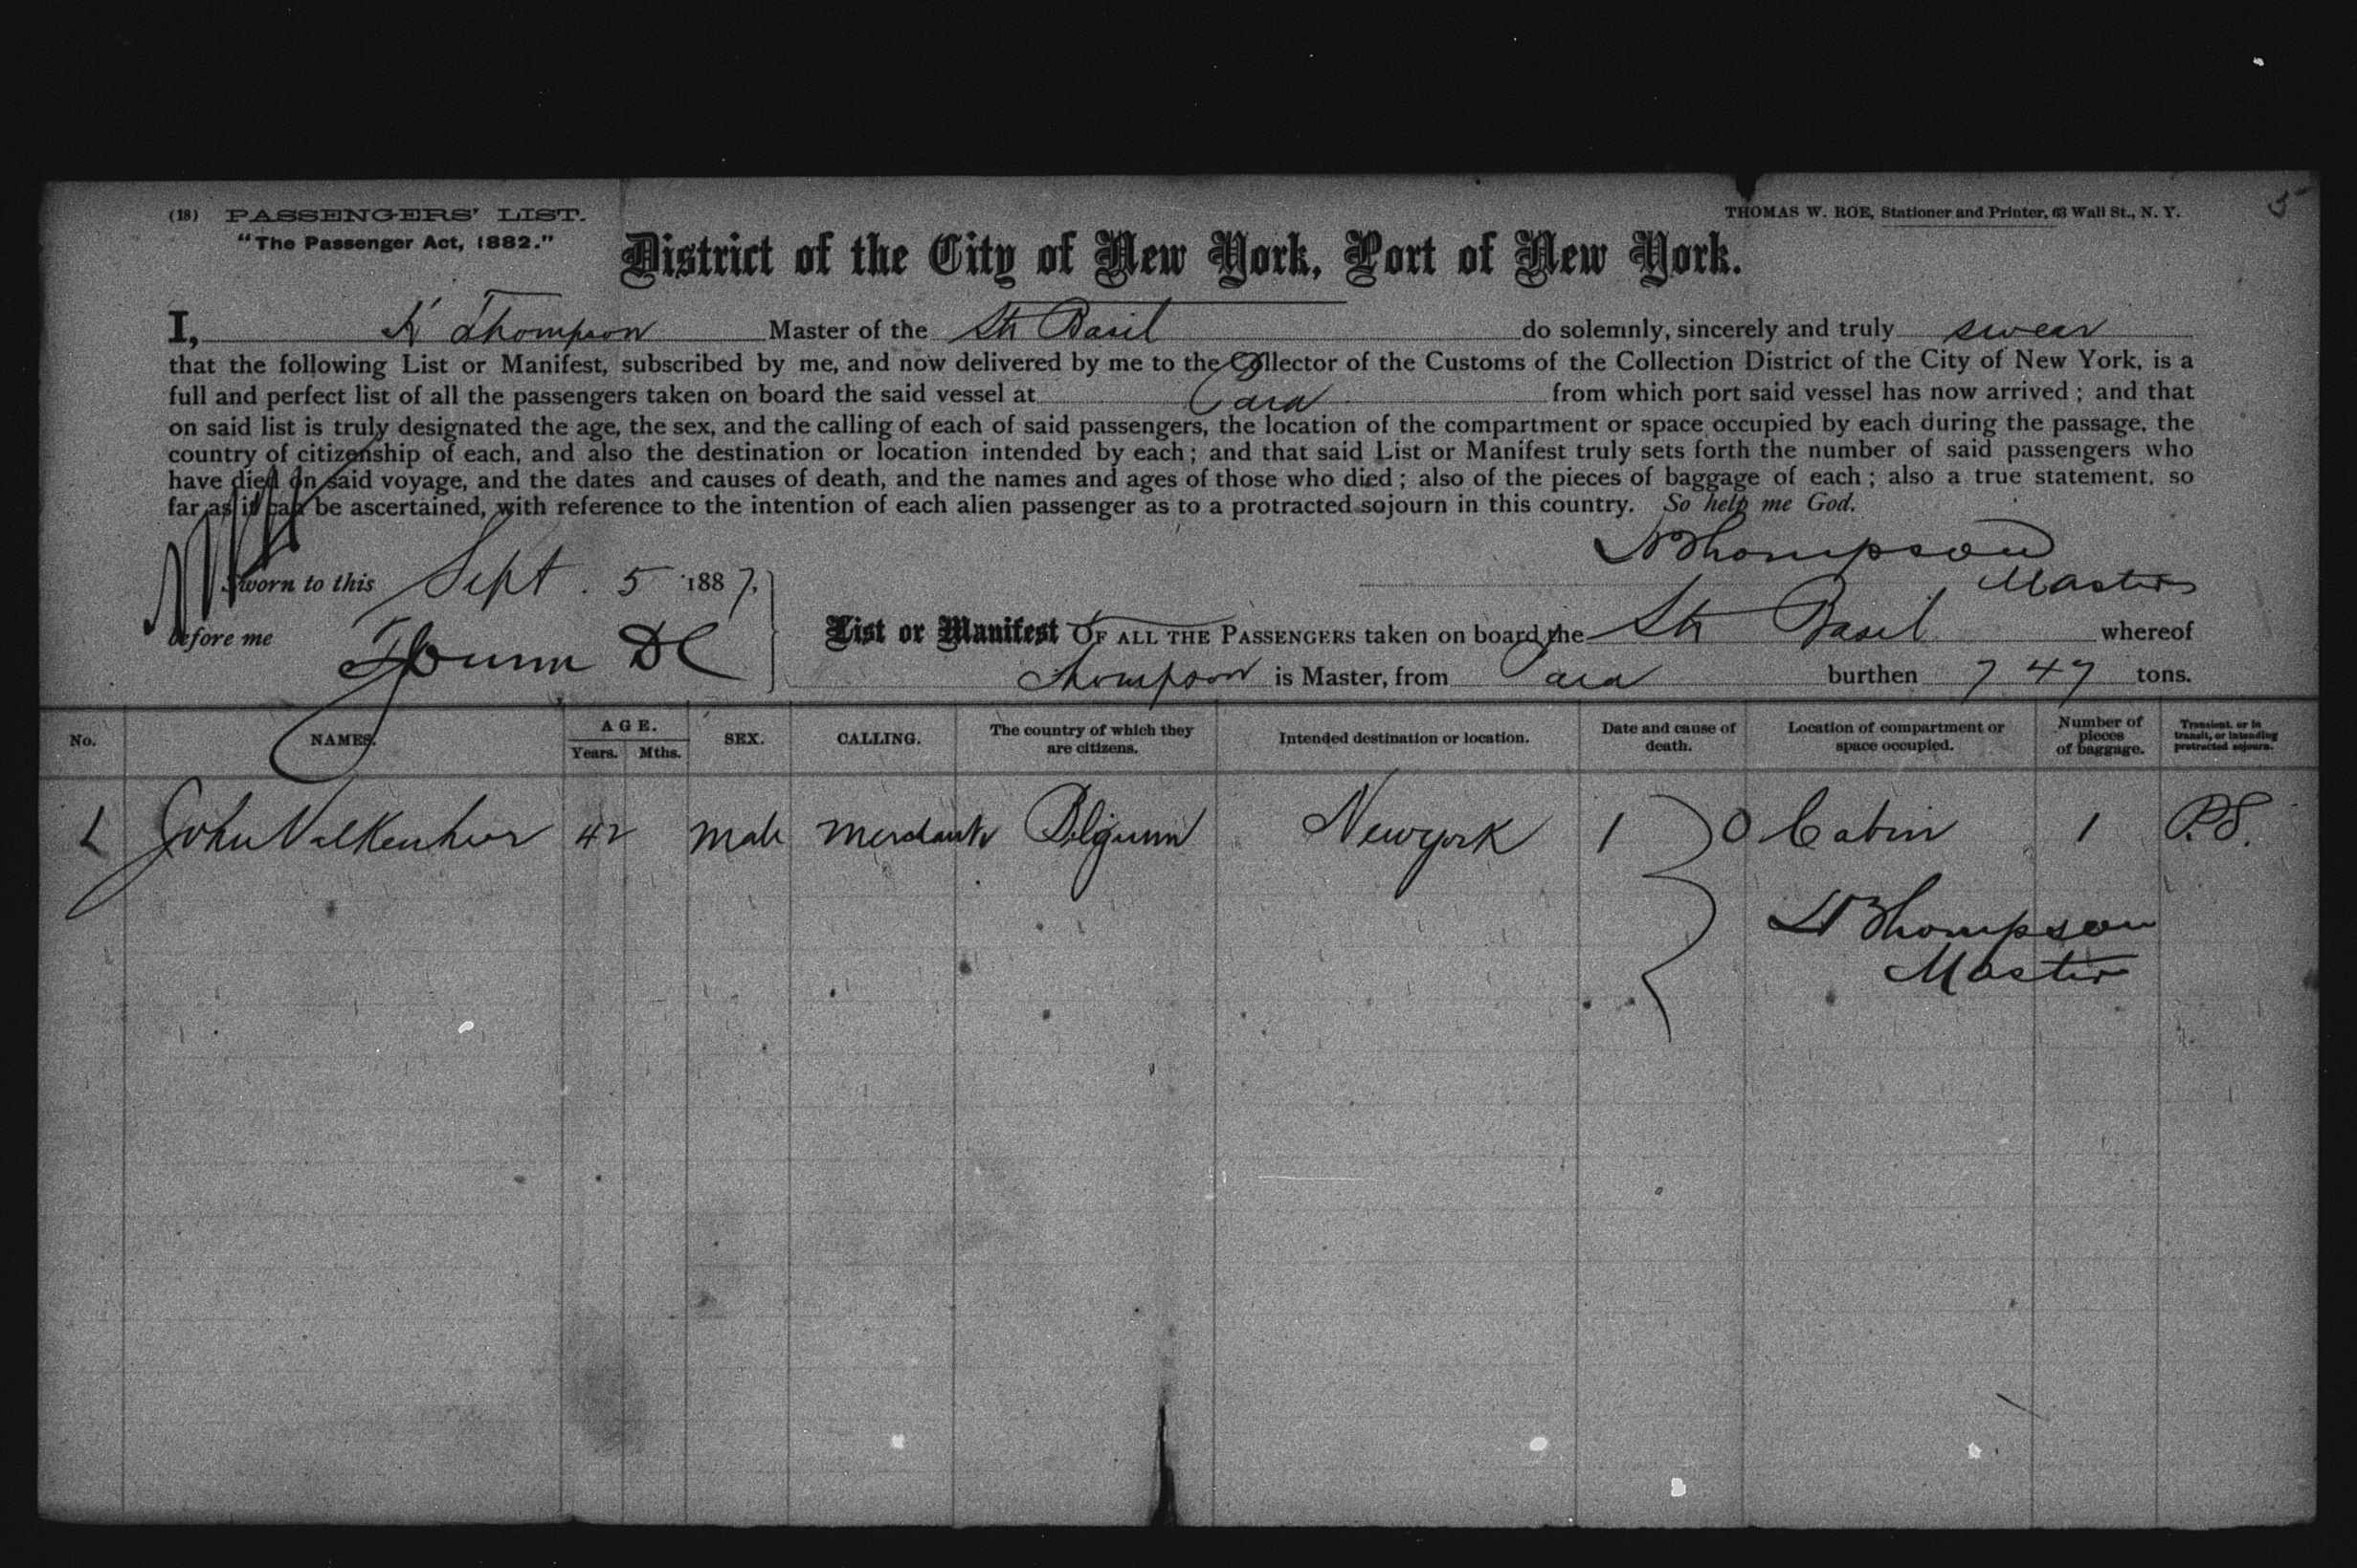 (18) PASSENGERS' LIST.
"The Passenger Act, 1882."
THOMAS W. ROE, Stationer and Printer, 63 Wall St., N. Y.
5
District of the City of New York, Port of New York.
I, Thompson Master of the Str Basil do solemnly, sincerely and truly swear
that the following List or Manifest, subscribed by me, and now delivered by me to the Collector of the Customs of the Collection District of the City of New York, is a
full and perfect list of all the passengers taken on board the said vessel at Para from which port said vessel has now arrived ; and that
on said list is truly designated the age, the sex, and the calling of each of said passengers, the location of the compartment or space occupied by each during the passage, the
country of citizenship of each, and also the destination or location intended by each ; and that said List or Manifest truly sets forth the number of said passengers who
have died on said voyage, and the dates and causes of death, and the names and ages of those who died ; also of the pieces of baggage of each ; also a true statement, so
far as it can be ascertained, with reference to the intention of each alien passenger as to a protracted sojourn in this country. So help me God.
Thompson
Master
Sworn to this Sept. 5 1887,
before me DC
List or Manifest OF ALL THE PASSENGERS taken on board the Str Basil whereof
Thompson is Master, from Para burthen 747 tons.
No. NAMES. AGE. Years. Mths. SEX. CALLING. The country of which they are citizens. Intended destination or location. Date and cause of death. Location of compartment or space occupied. Number of pieces of baggage. Transient, or in transit, or intending protracted sojourn.
1 John 42 male merchant Belgium Newyork 1 0 Cabin 1 P.S.
Thompson
Master